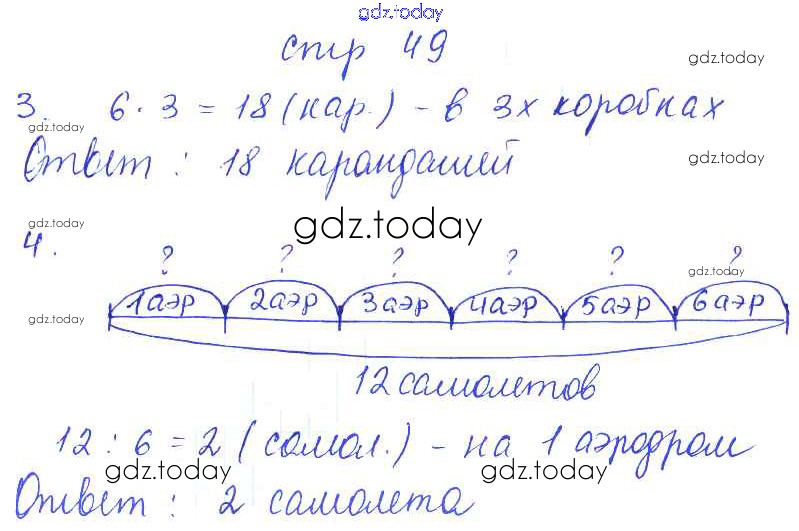 gdz.today
стр 49
gdz.today
3. 6 · 3 = 18 (кар.) - в 3х коробках
gdz.today
Ответ : 18 карандашей
gdz.today
gdz.today
gdz.today
4.
? ? ? ? ? ?
gdz.today
1аэр 2аэр 3аэр 4аэр 5аэр 6аэр
gdz.today
12 самолетов
12 : 6 = 2 (самол.) - на 1 аэродром
gdz.today gdz.today
Ответ : 2 самолета